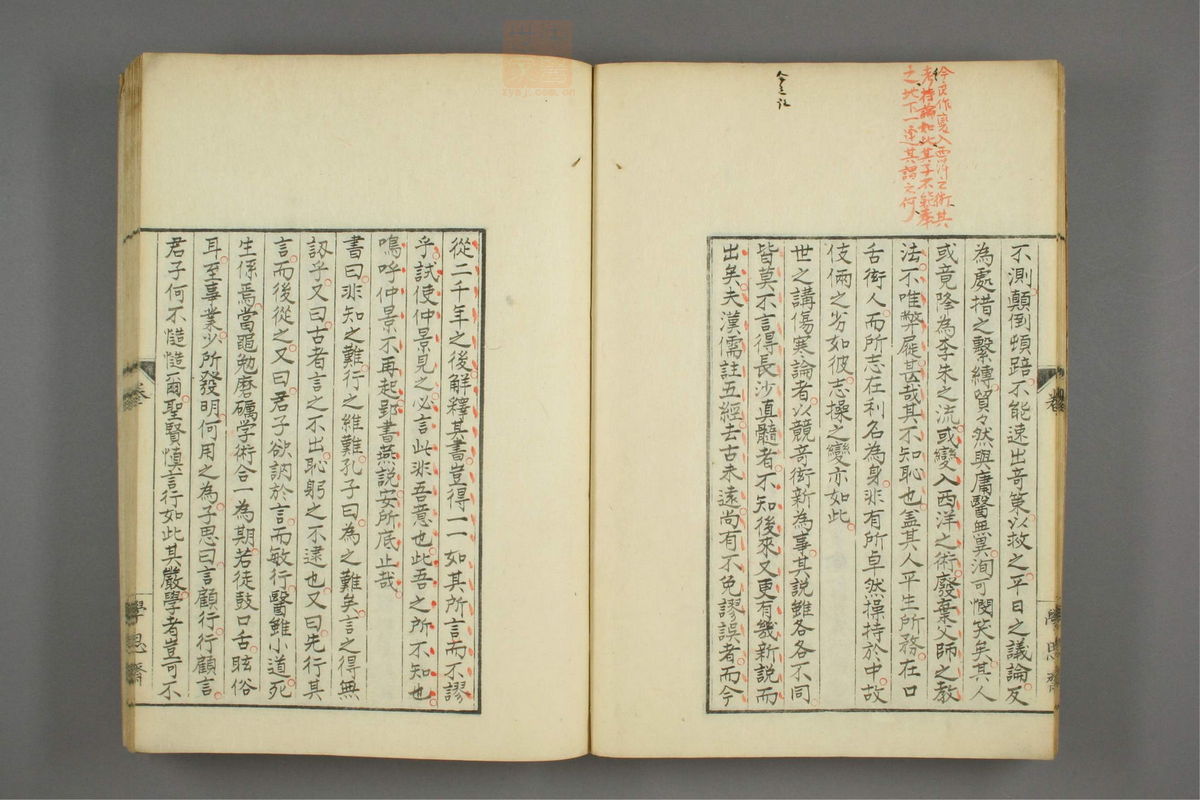 今良作変入西洋之術其
考持論如此其子不能奉
之地下一達其謂之何
不測顛倒頓踣不能速出奇策以救之平日之議論反
為處措之繫縛貿々然與庸醫無異洵可憫笑矣其人
或竟降為李朱之流或變入西洋之術廢棄父師之教
法不唯弊屣甚哉其不知恥也盖其人平生所務在口
舌衒人而所志在利名為身非有所卓然操持於中故
伎倆之劣如彼志操之變亦如此
世之講傷寒論者以競奇衒新為事其說雖各各不同
皆莫不言得長沙真髓者不知後來又更有幾新說而
出矣夫漢儒註五經去古未遠尚有不免謬誤者而今
從二千年之後解釋其書豈得一一如其所言而不謬
乎試使仲景見之必言此非吾意也此吾之所不知也
嗚呼仲景不再起郢書燕說安所底止哉
書曰非知之難行之維難孔子曰為之難矣言之得無
訒乎又曰古者言之不出恥躬之不逮也又曰先行其
言而後從之又曰君子欲訥於言而敏行醫雖小道死
生係焉當黽勉磨礪学術合一為期若徒鼓口舌眩俗
耳至事業少所發明何用之為子思曰言顧行行顧言
君子何不慥慥爾聖賢慎言行如此其嚴學者豈可不
卷
學思齋